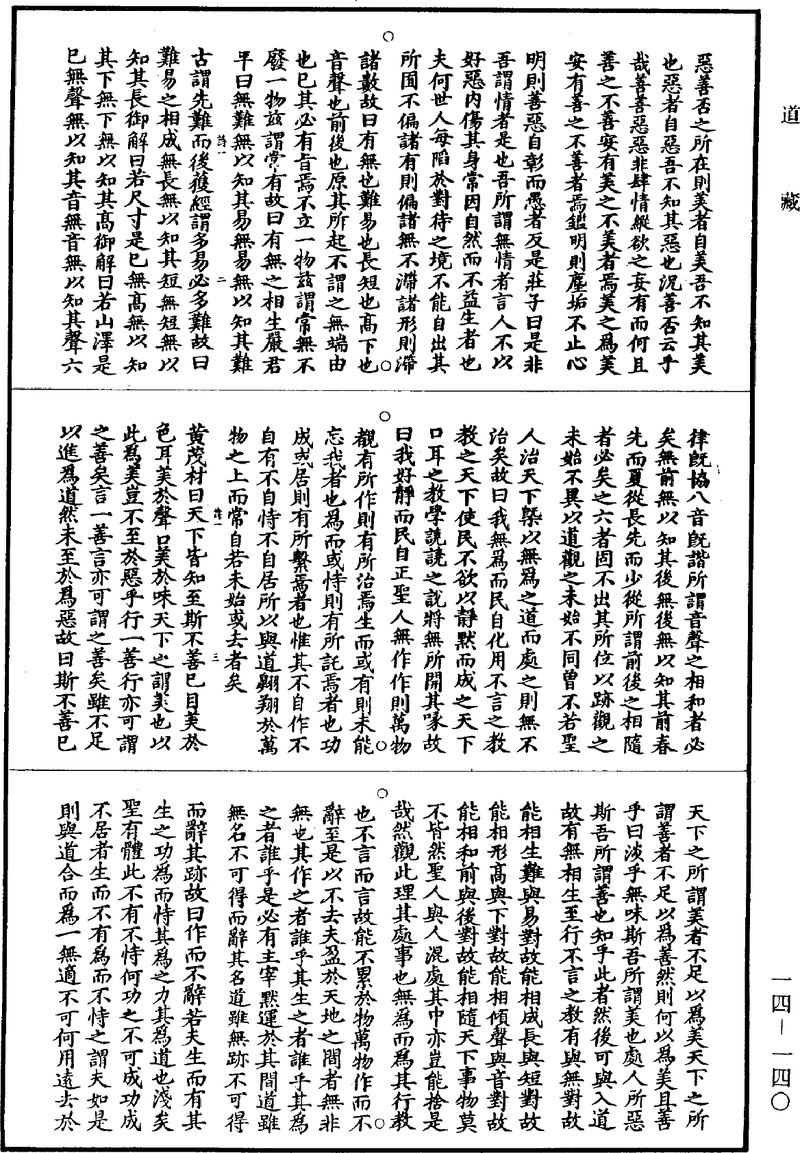 道藏
惡善否之所在則美者自美吾不知其美
也惡者自惡吾不知其惡也況善否云乎
哉善善惡惡非肆情縱欲之妄有而何且
善之不善安有美之不美者焉美之為美
安有善之不善者焉鑑明則塵垢不止心
明則善惡自彰而愚者反是莊子曰是非
吾謂情者是也吾所謂無情者言人不以
好惡內傷其身常因自然而不益生者也
夫何世人每陷於對待之境不能自出其
所囿不偏諸有則偏諸無不滯諸形則滯
諸數故曰有無也難易也長短也高下也
音聲也前後也原其所起不謂之無端由
也已其必有旨焉不立一物茲謂常無不
廢一物茲謂常有故曰有無之相生嚴君
平曰無難無以知其易無易無以知其難
詩一
二
古謂先難而後獲經謂多易必多難故曰
難易之相成無長無以知其短無短無以
知其長御解曰若尺寸是已無高無以知
其下無下無以知其高御解曰若山澤是
已無聲無以知其音無音無以知其聲六
律既協八音既諧所謂音聲之相和者必
矣無前無以知其後無後無以知其前春
先而夏從長先而少從所謂前後之相隨
者必矣之六者固不出其所位以跡觀之
未始不異以道觀之未始不同曾不若聖
人治天下槩以無為之道而處之則無不
治矣故曰我無為而民自化用不言之教
教之天下使民不欲以靜默而成之天下
口耳之教學譊譊之說將無所開其喙故
曰我好靜而民自正聖人無作作則萬物
覩有所作則有所治焉生而或有則未能
忘我者也為而或恃則有所託焉者也功
成或居則有所繫焉者也惟其不自作不
自有不自恃不自居所以與道翺翔於萬
物之上而常自若未始或去者矣
詩一
三
黃茂材曰天下皆知至斯不善已目美於
色耳美於聲口美於味天下之謂美也以
此為美豈不至於惡乎行一善行亦可謂
之善矣言一善言亦可謂之善矣雖不足
以進為道然未至於為惡故曰斯不善已
天下之所謂美者不足以為美天下之所
謂善者不足以為善然則何以為美且善
乎曰淡乎無味斯吾所謂美也處人所惡
斯吾所謂善也知乎此者然後可與入道
故有無相生至行不言之教有與無對故
能相生難與易對故能相成長與短對故
能相形高與下對故能相傾聲與音對故
能相和前與後對故能相隨天下事物莫
不皆然聖人與人混處其中亦豈能捨是
哉然觀此理其處事也無為而為其行教
也不言而言故能不累於物萬物作而不
辭至是以不去夫盈於天地之間者無非
無也其作之者誰乎其生之者誰乎其為
之者誰乎是必有主宰默運於其間道雖
無名不可得而辭其名道雖無跡不可得
而辭其跡故曰作而不辭若夫生而有其
生之功為而恃其為之力其為道也淺矣
聖有體此不有不恃何功之不可成功成
不居者生而不有為而不恃之謂夫如是
則與道合而為一無適不可何用遠去於
一四—一四〇